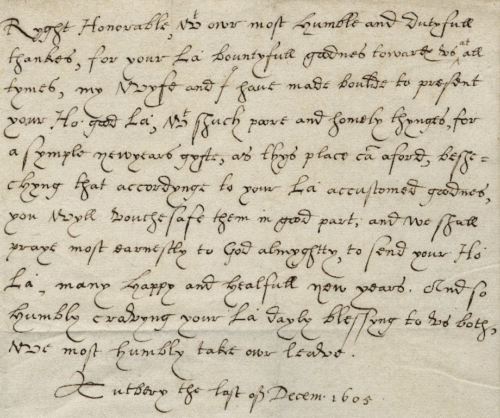 Ryght Honorable, wt owr most humble and dutyfull
thankes, for your La bountyfull goodnes towards vs at all
tymes, my wyfe and I have made boulde to present
your Ho: good La, wt shuch poore and homely thynges, for
a symple newyears gyfte, as thys place ca aford, beshe=
chyng that accordynge to your La accustomed goodnes,
you wyll vouchesafe them in good part, and we shall
praye most earnestly to God almyghtty, to send your Ho
La, many happy and healfull new years. And so
humbly cravyng your La dayly blessyng to vs both,
Wee most humbly take owr leave.
the last of Decem. 1605